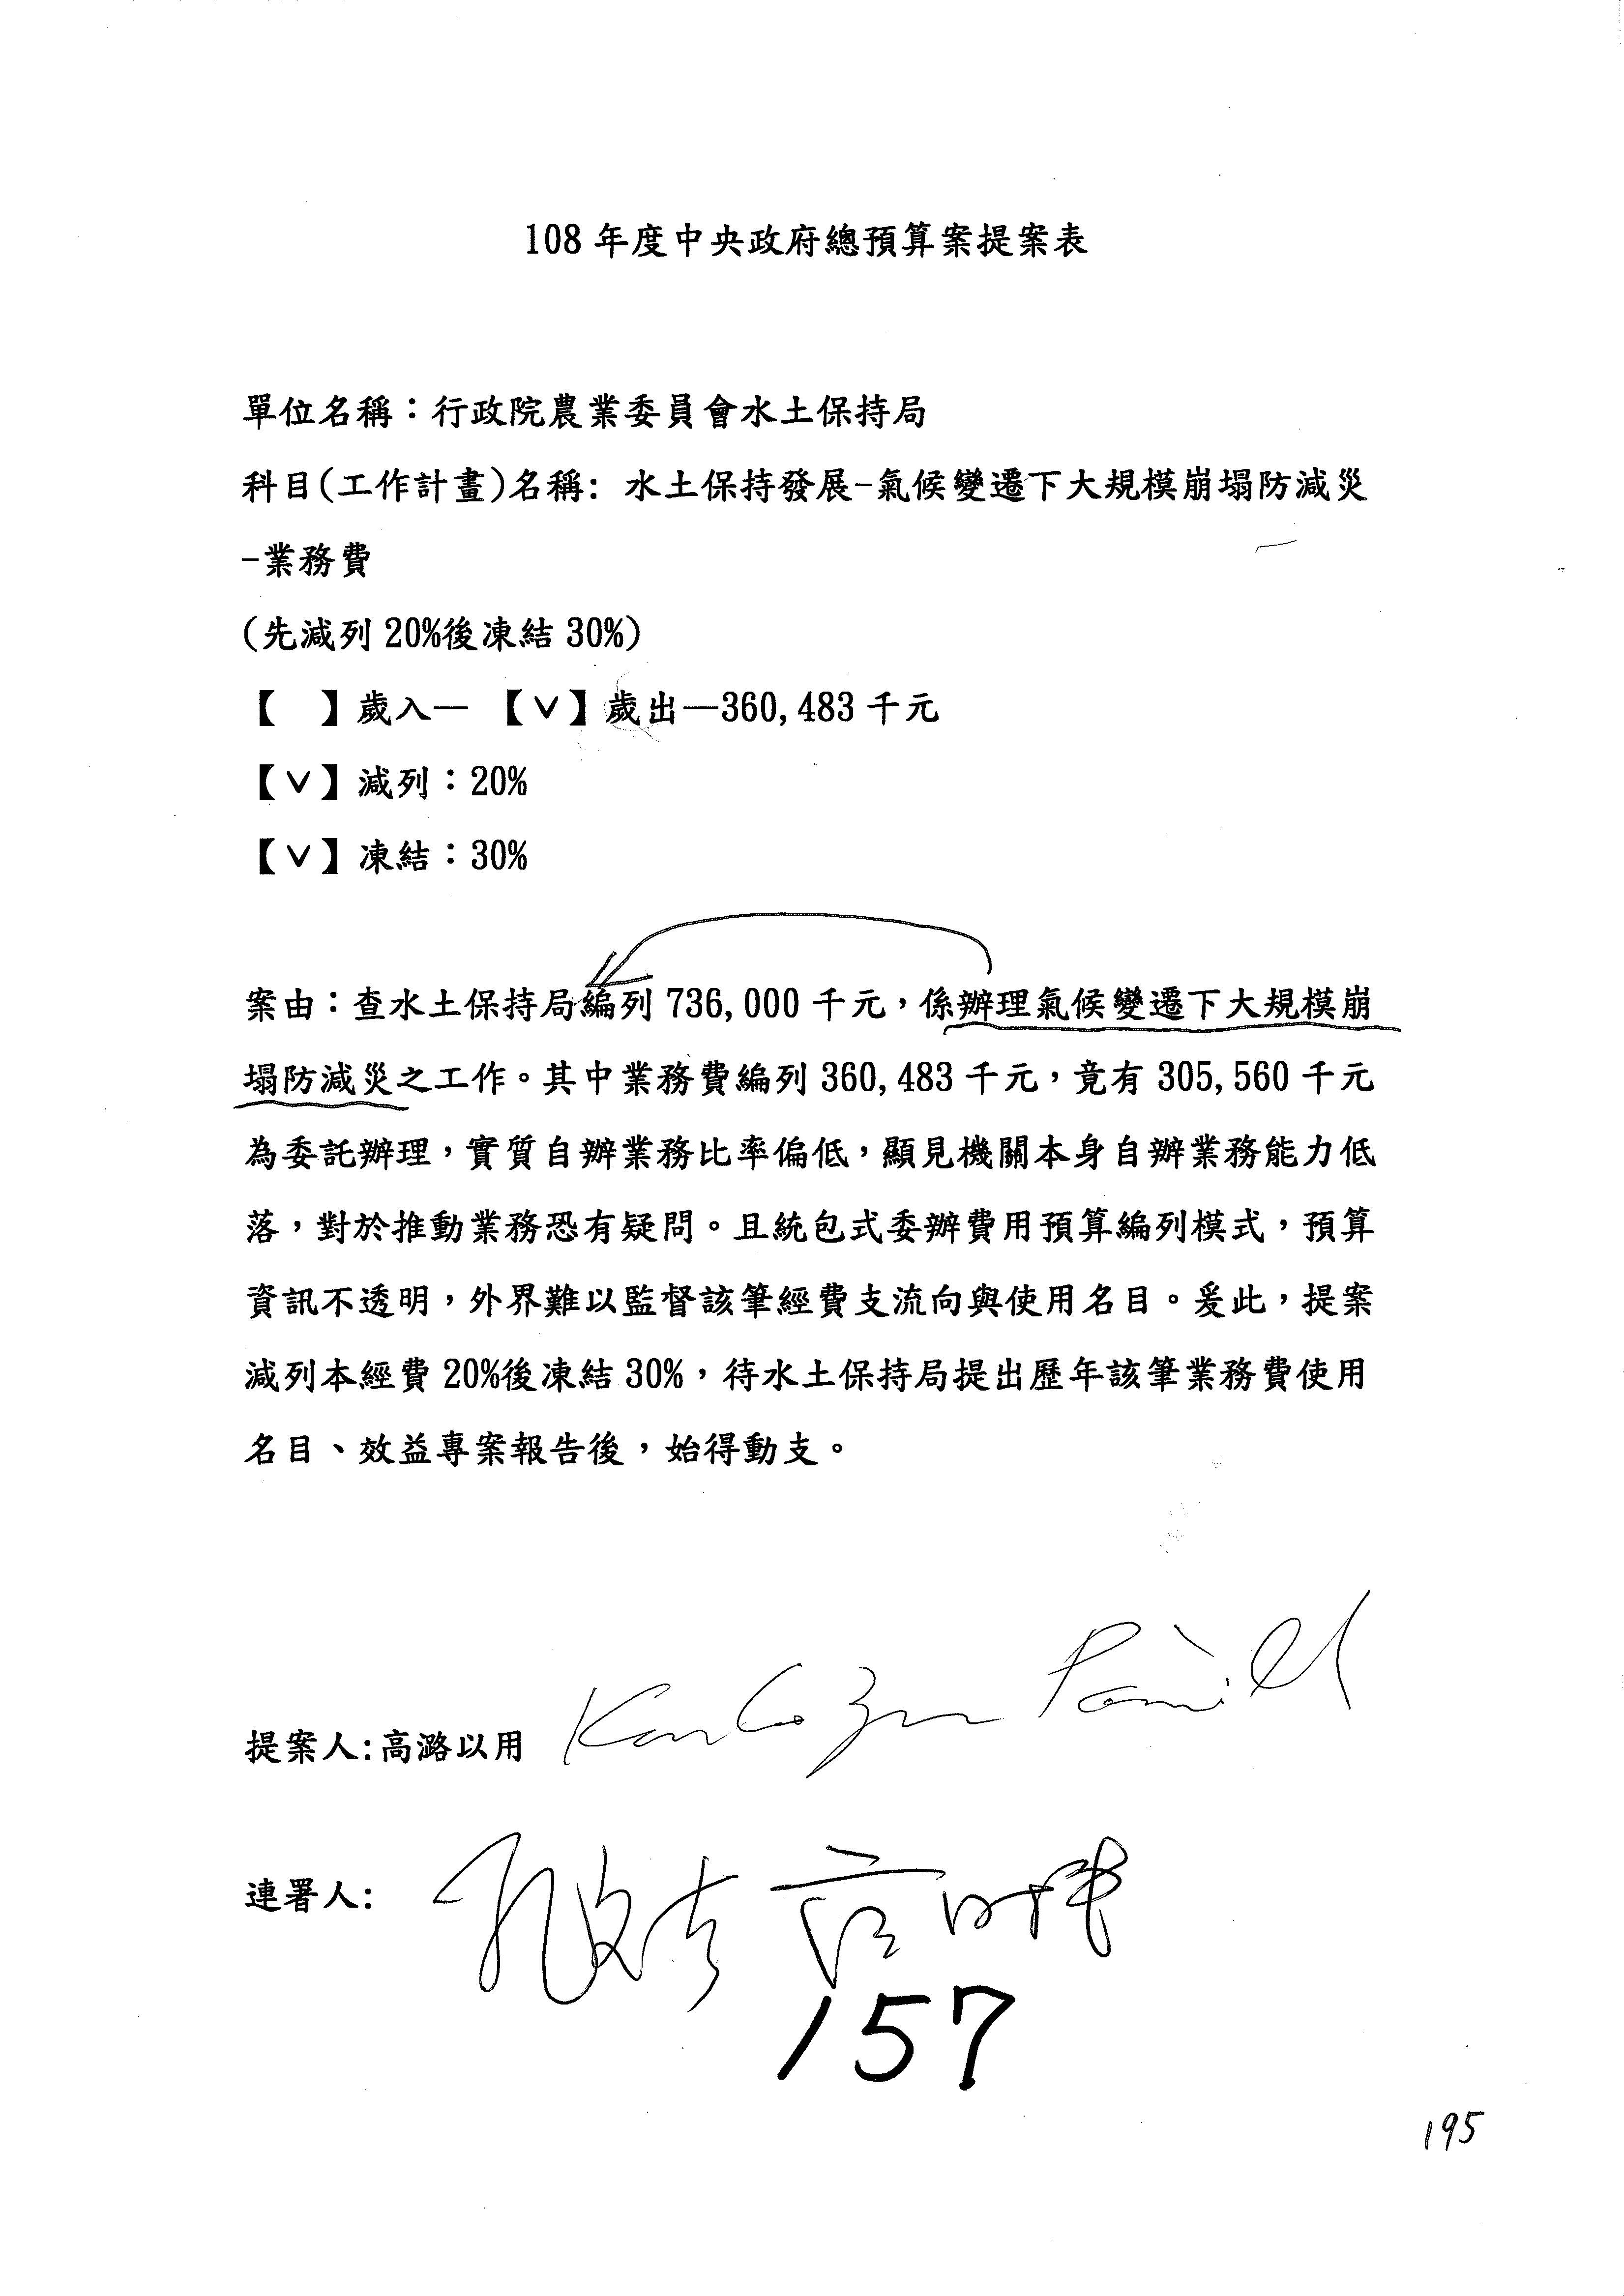 108 年度中央政府總預算案提案表
單位名稱：行政院農業委員會水土保持局
科目(工作計畫)名稱: 水土保持發展-氣候變遷下大規模崩塌防減災
-業務費
(先減列 20%後凍結 30%)
【　】歲入— 【∨】歲出—360,483 千元
【∨】減列：20%
【∨】凍結：30%
案由：查水土保持局編列 736,000 千元，係辦理氣候變遷下大規模崩
塌防減災之工作。其中業務費編列 360,483 千元，竟有 305,560 千元
為委託辦理，實質自辦業務比率偏低，顯見機關本身自辦業務能力低
落，對於推動業務恐有疑問。且統包式委辦費用預算編列模式，預算
資訊不透明，外界難以監督該筆經費支流向與使用名目。爰此，提案
減列本經費 20%後凍結 30%，待水土保持局提出歷年該筆業務費使用
名目、效益專案報告後，始得動支。
提案人:高潞以用
連署人:
157
195